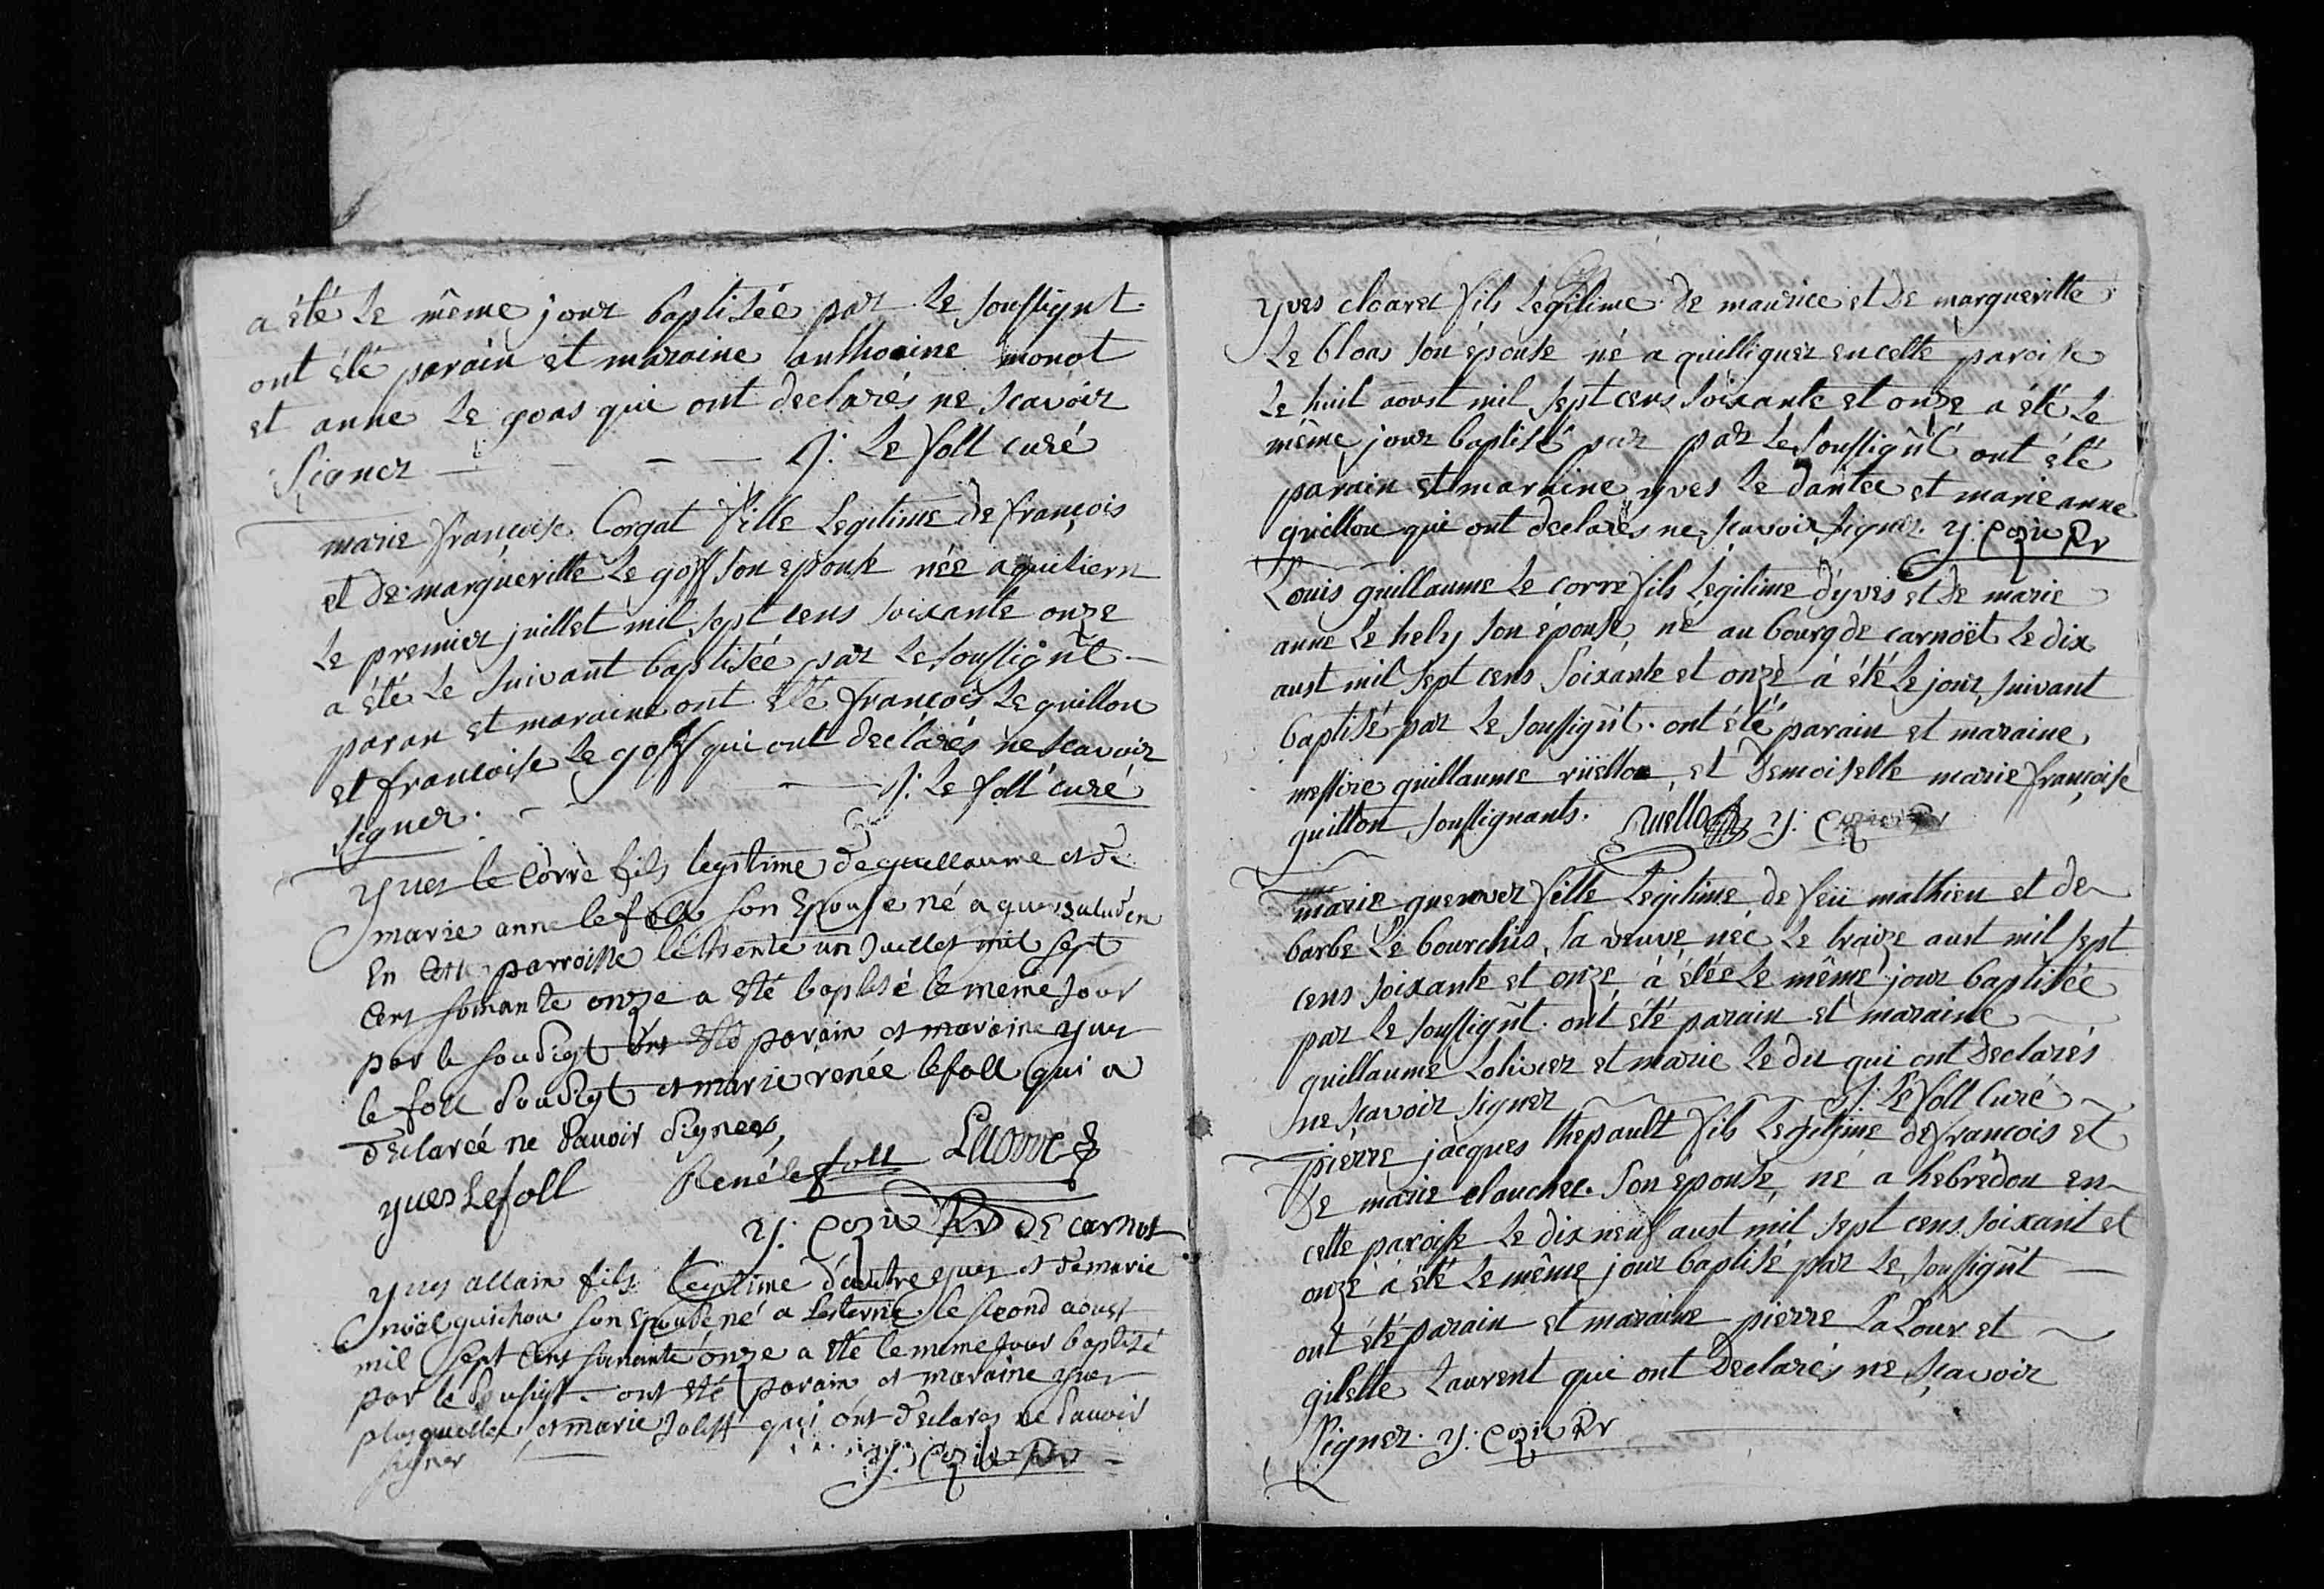 a été le même jour baptisée par le soussignt.
ont été parain et maraine anthoine monot
et anne le goas qui ont declarés ne scavoir
signer — — — — J: le foll curé
marie françoise Corgat fille legitime de françois
et de margueritte le goff son epouse née a quiliern
le premier juillet mil sept cens soixante onze
a été le suivant baptisée par le soussignt —
paran et maraine ont été françois le guillou
et francoise le goff qui ont declarés ne scavoir
signer. — — J: le foll curé
yves le corre fils legitime de guillaume et de
marie anne le foll son epouse né a
En cette parroisse le trente un Juillet mil sept
cens soixante onze a eté baptisé le meme jour
par le sousigt ont eté parain et maraine yves
le foll sousigt et marie renée le foll qui a
declarée ne savoir signer,
yves Lefoll René lefoll
y: cozic Rr de carnot
yves allain fils legitime d'autre yves et de marie
noël guichou son epouse né a Lesternic le second aoust
mil sept cens soixante onze a été le meme jour baptisé
par le sousigt — ont eté parain et maraine yves
plusquellec et marie Joliff qui ont declarés ne savoir
signer — y. cozic Rr —
yves cloarec fils legitime de maurice et de margueritte
le bloas son épouse né a quilliguer en cette paroisse
le huit aoust mil sept cens soixante et onze a été le
même jour baptisé par par le soussignt ont été
parain et marraine yves le dantec et marie anne
guillou qui ont declarés ne scavoir signer. y: cozic Rr
Louis guillaume le corre fils légitime d'yves et de marie
anne le hely son épouse, né au bourg de carnoët le dix
aust mil sept cens soixante et onze a été le jour suivant
baptisé par le soussignt. ont été parain et maraine
messire guillaume rüellou et demoiselle marie françoise
guillou soussignants. Ruellou y: cozic Rr
marie guenver fille legitime de feü mathieu et de
barbe le bourchis, sa veuve née le traize aust mil sept
cens soixante et onze, a étée le même jour baptisée
par le soussignt. ont été parain et maraine
guillaume Lolivier et marie le du qui ont declarés
ne scavoir signer J: le foll curé
pierre jacques thepault fils legitime de françois et
de marie clauchec son epouse, né a hebredou en
cette paroisse le dix neuf aust mil sept cens soixant et
onze a été le même jour baptisé par le soussignt —
ont été parain et maraine pierre Lalour et
gilette Laurent qui ont declarés ne sçavoir
signer. y: cozic Rr